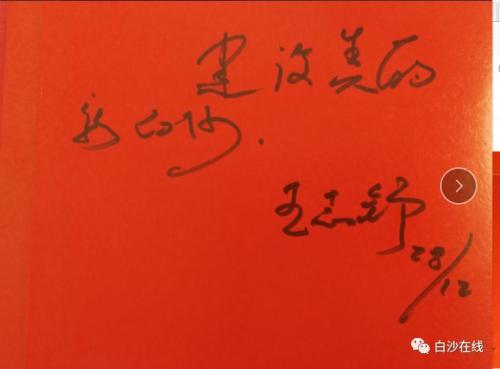 建设美的
新白沙.
王志舒
28/12
白沙在线